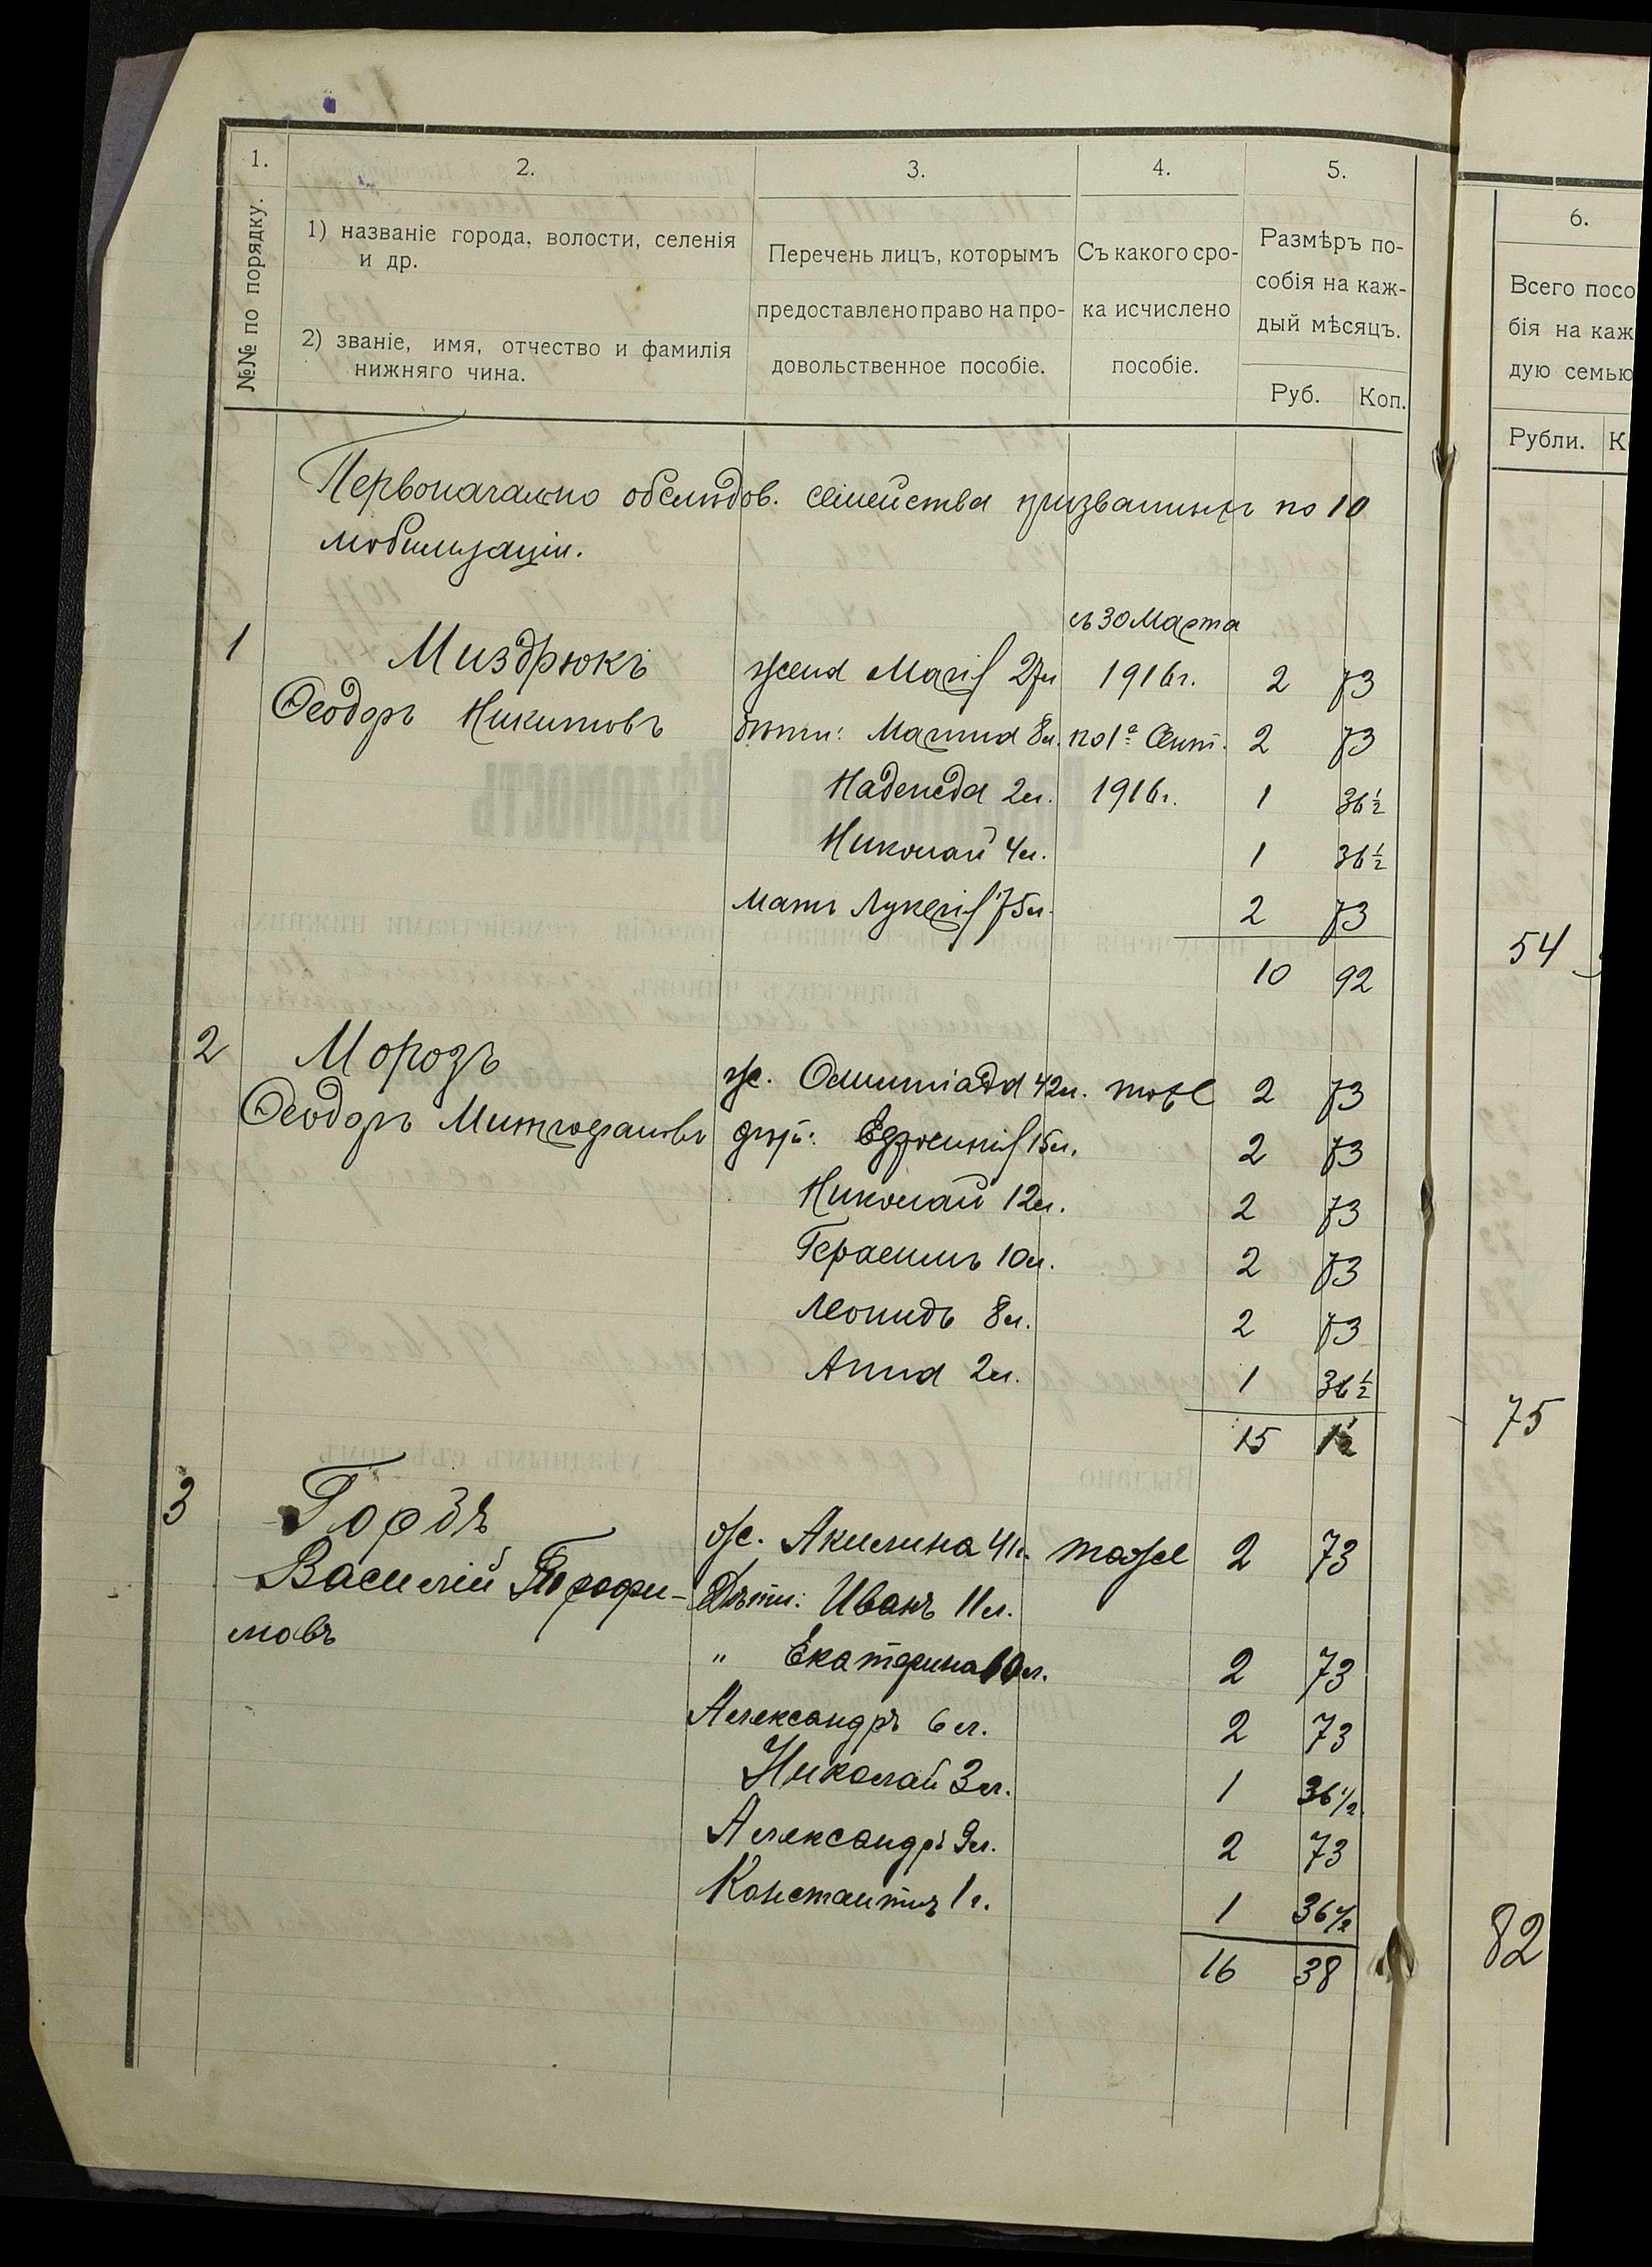 1.
2.
3.
4.
5.
6.
№№ по порядку.
1) названіе города, волости, селенія
и др.
2) званіе, имя, отчество и фамилія
нижняго чина.
Перечень лицъ, которымъ
предоставлено право на про-
довольственное пособіе.
Съ какого сро-
ка исчислено
пособіе.
Размѣръ по-
собія на каж-
дый мѣсяцъ.
Руб. Коп.
Всего посо
бія на каж
дую семью
Рубли. К
Первоначально обслѣдов. семейства призванныхъ по 10
мобилизаціи.
съ 30 Марта
1 Миздрюкъ жена Марія 27л 1916г. 2 73
Ѳеодоръ Никитовъ дѣти: 8л. по 1е Сент. 2 73
Надежда 2л. 1916г. 1 36½
Николай 4л. 1 36½
мать Лукерія 75л. 2 73
10 92
54
2 Морозъ ж. Олимпіада 42л. тоже 2 73
Ѳеодоръ Митрофановъ дѣти: Ефросинія 15л. 2 73
Николай 12л. 2 73
Герасимъ 10л. 2 73
Леонидъ 8л. 2 73
Анна 2л. 1 36½
15 1½
75
3 Гордъ
ж. Акилина 41г. тоже 2 73
Василій Трофи-
мовъ
Дѣти: Иванъ 11л.
" Екатерина 10л. 2 73
Александръ 6л. 2 73
Николай 3л. 1 36½
Александръ 9л. 2 73
Константинъ 1г. 1 36½
16 38
82